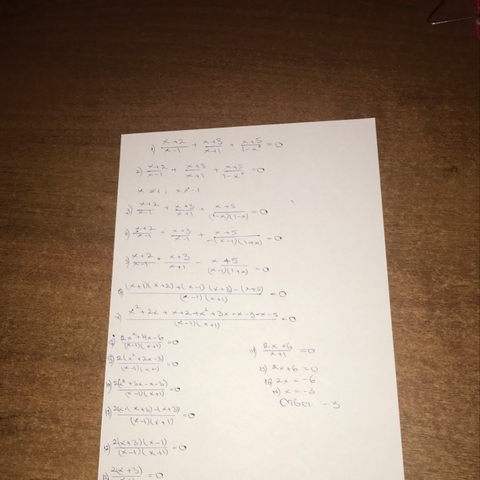 1) x+2/x-1 + x+3/x+1 + x+5/1-x² = 0
2) x+2/x-1 + x+3/x+1 + x+5/1-x² = 0
x ≠ 1, x ≠ -1
3) x+2/x-1 + x+3/x+1 + x+5/(1-x)(1-x) = 0
x+2/x-1 + x+3/x-1 + x+5/-(x-1)(1+x) = 0
x+2/x-1 + x+3/x+1 - x+5/(x-1)(1+x) = 0
(x+1)(x+2)+(x-1)(x+3)-(x+5)/(x-1)(x+1) = 0
x²+2x+x+2+x²+3x-x-3-x-5/(x-1)(x+1) = 0
2x²+4x-6/(x-1)(x+1) = 0
2(x²+2x-3)/(x-1)(x+1) = 0
10) 2(x²+3x-x-3)/(x-1)(x+1) = 0
11) 2(x(x+3)-(x+3))/(x-1)(x+1) = 0
12) 2(x+3)(x-1)/(x-1)(x+1) = 0
2(x+3) = 0
2x+6/x+1 = 0
2x+6 = 0
2x = -6
x = -3
Ответ: -3